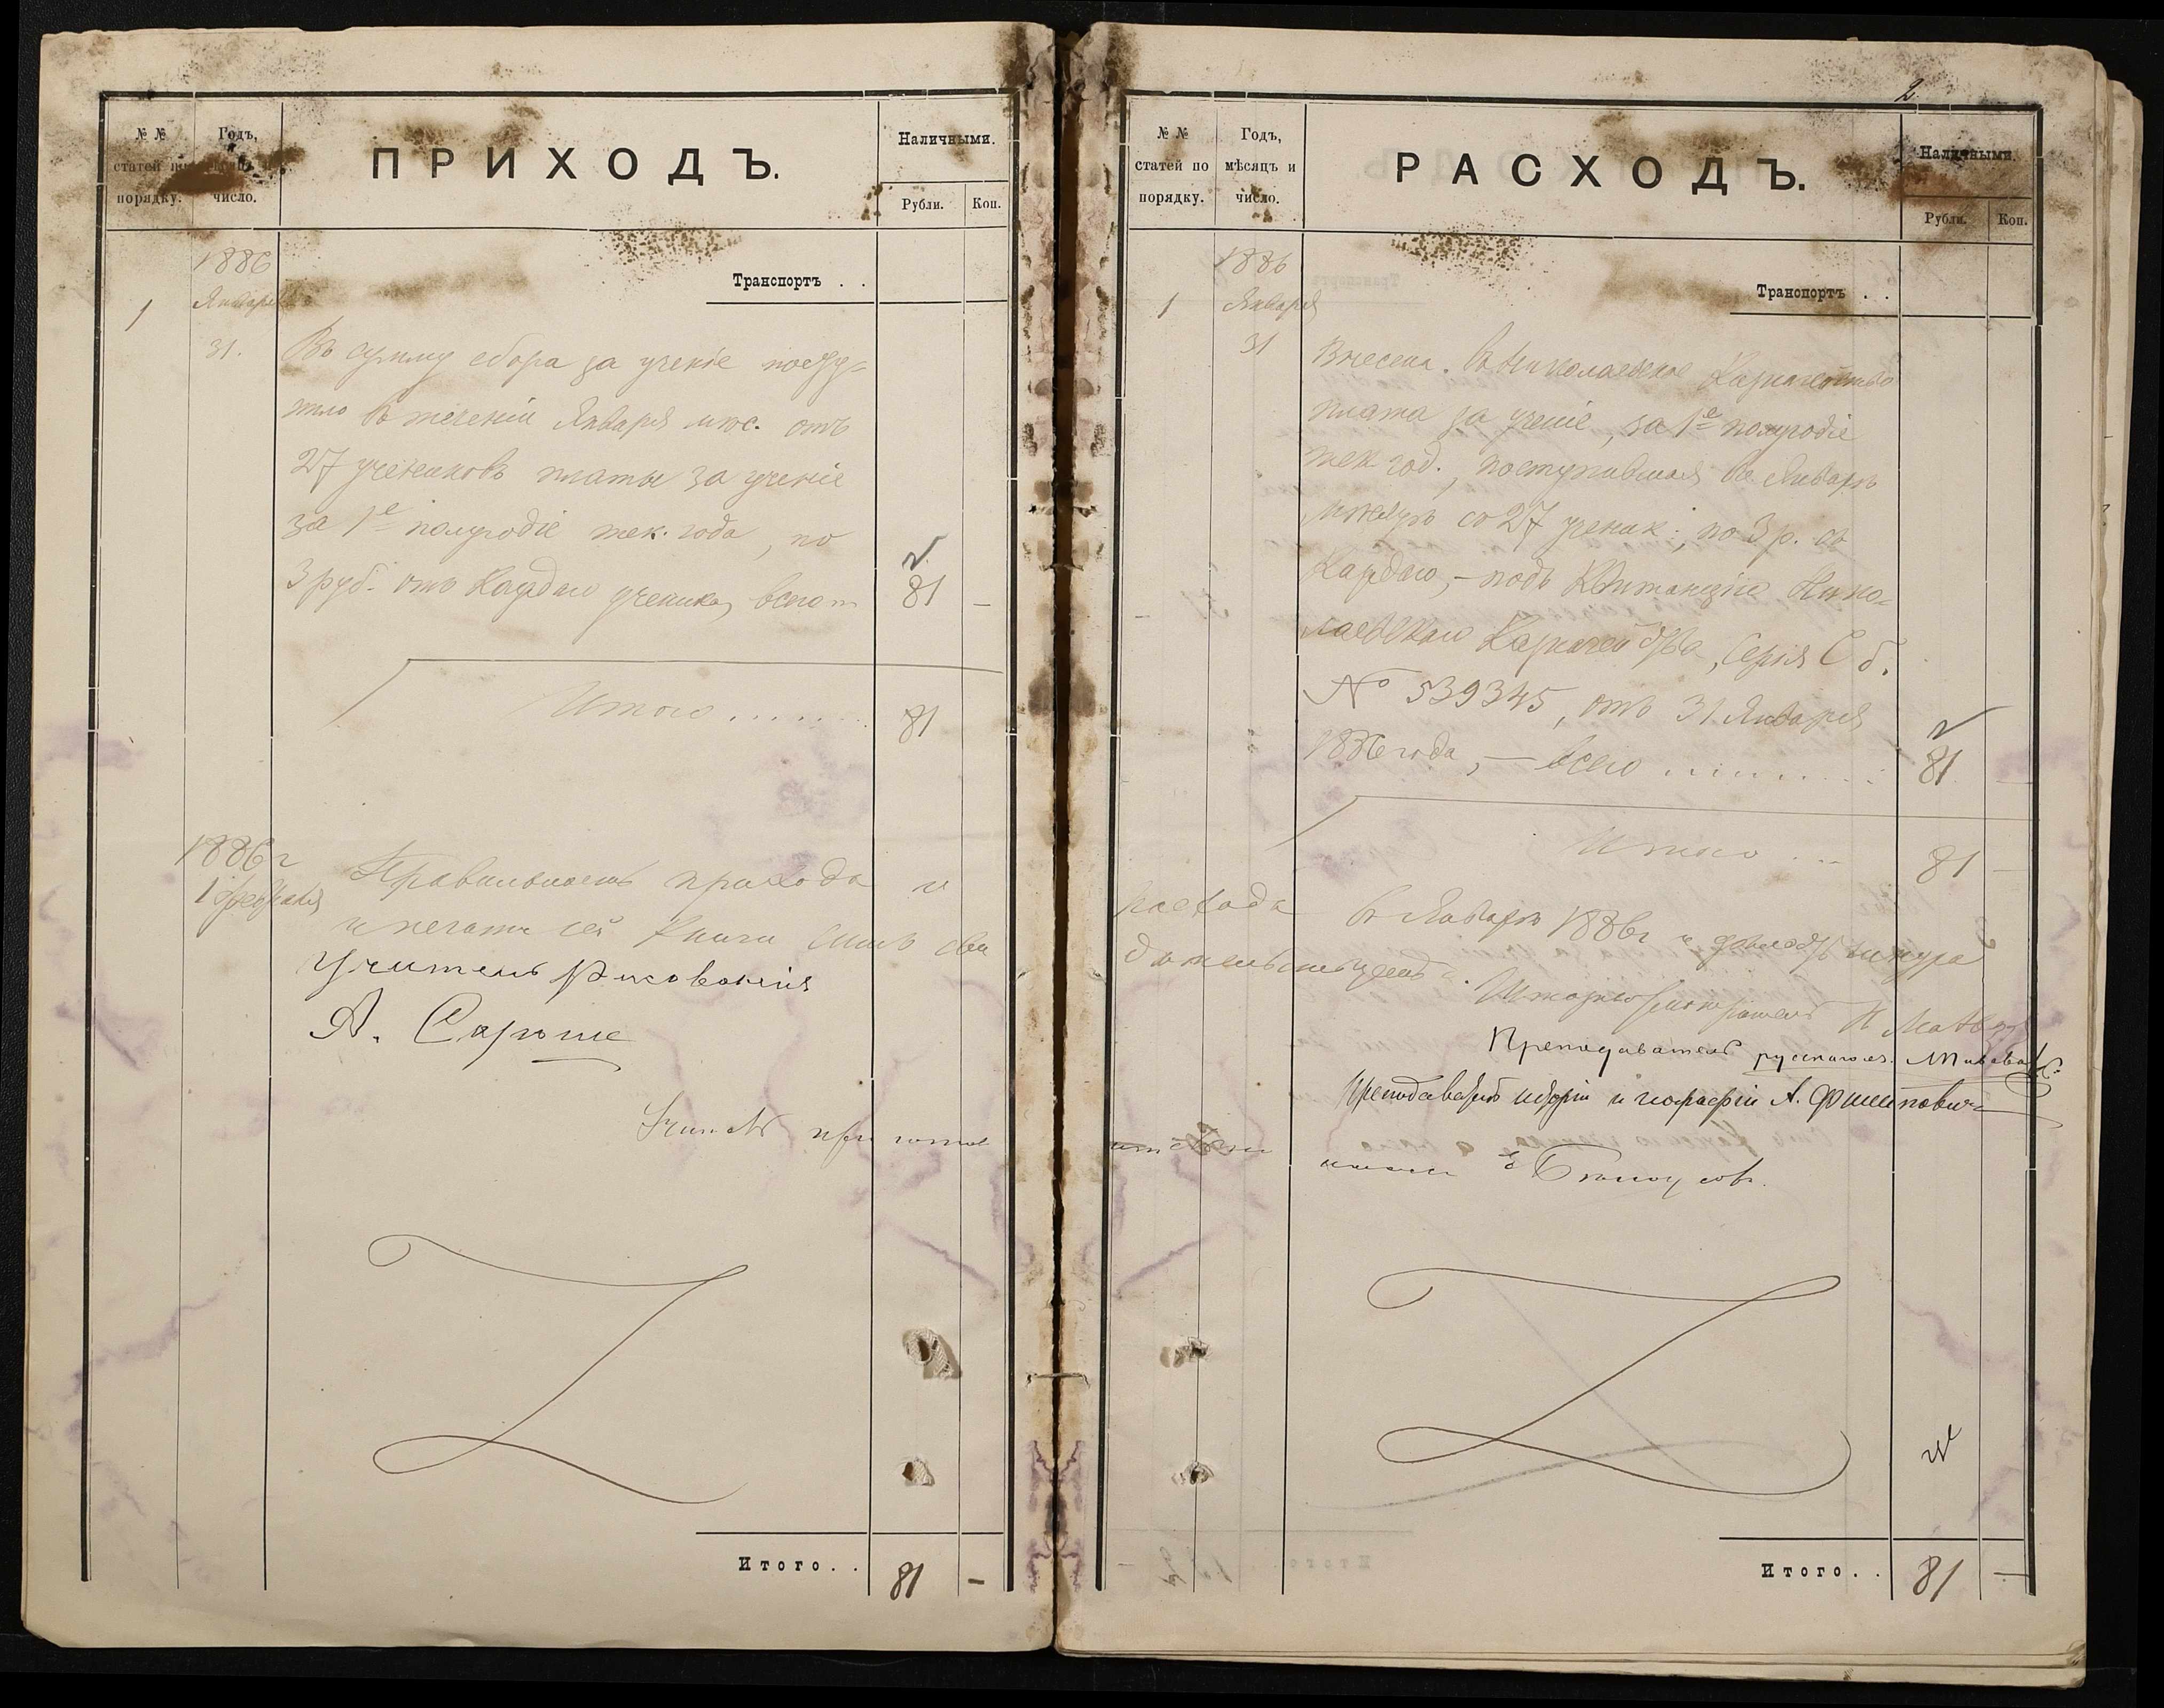 № №
статей по
порядку.
Годъ,
число.
ПРИХОДЪ.
Наличными.
Рубли.
Коп.
Транспортъ . .
1886
Января
1
31.
Въ сумму сбора за ученіе посту-
пило въ теченіи Января мѣс. отъ
27 учениковъ платы за ученіе
за 1е полугодіе тек. года, по
3 руб. отъ каждаго ученика, всего
81 —
Итого . . . . . . .
81
1886 г
1 февраля
Правильность прихода и
и печати сей книги симъ сви
Учитель Рисованія
А.
Учитель при
Итого. .
81 —
2
№ №
статей по
порядку.
Годъ,
мѣсяцъ и
число.
РАСХОДЪ.
Наличными.
Рубли.
Коп.
Транспортъ . .
1886
Января
1
31
Внесена въ Николаевское Казначейство
плата за ученіе, за 1е полугодіе
тек. год., поступившая въ Январѣ
мѣсяцѣ съ 27 ученик., по 3 р. съ
каждаго, — подъ квитанцію Нико-
лаевскаго Казначейства, Серія С б.
№ 539345, отъ 31 Января
1886 года, — всего . . . . . . . . .
81 —
Итого . . .
81 —
расхода въ Январѣ 1886 г и
дѣтельствуемъ.
Преподаватель русскаго яз.
Преподаватель исторіи и географіи А. Филипповичъ
Бѣлоусовъ.
Итого. .
81 —